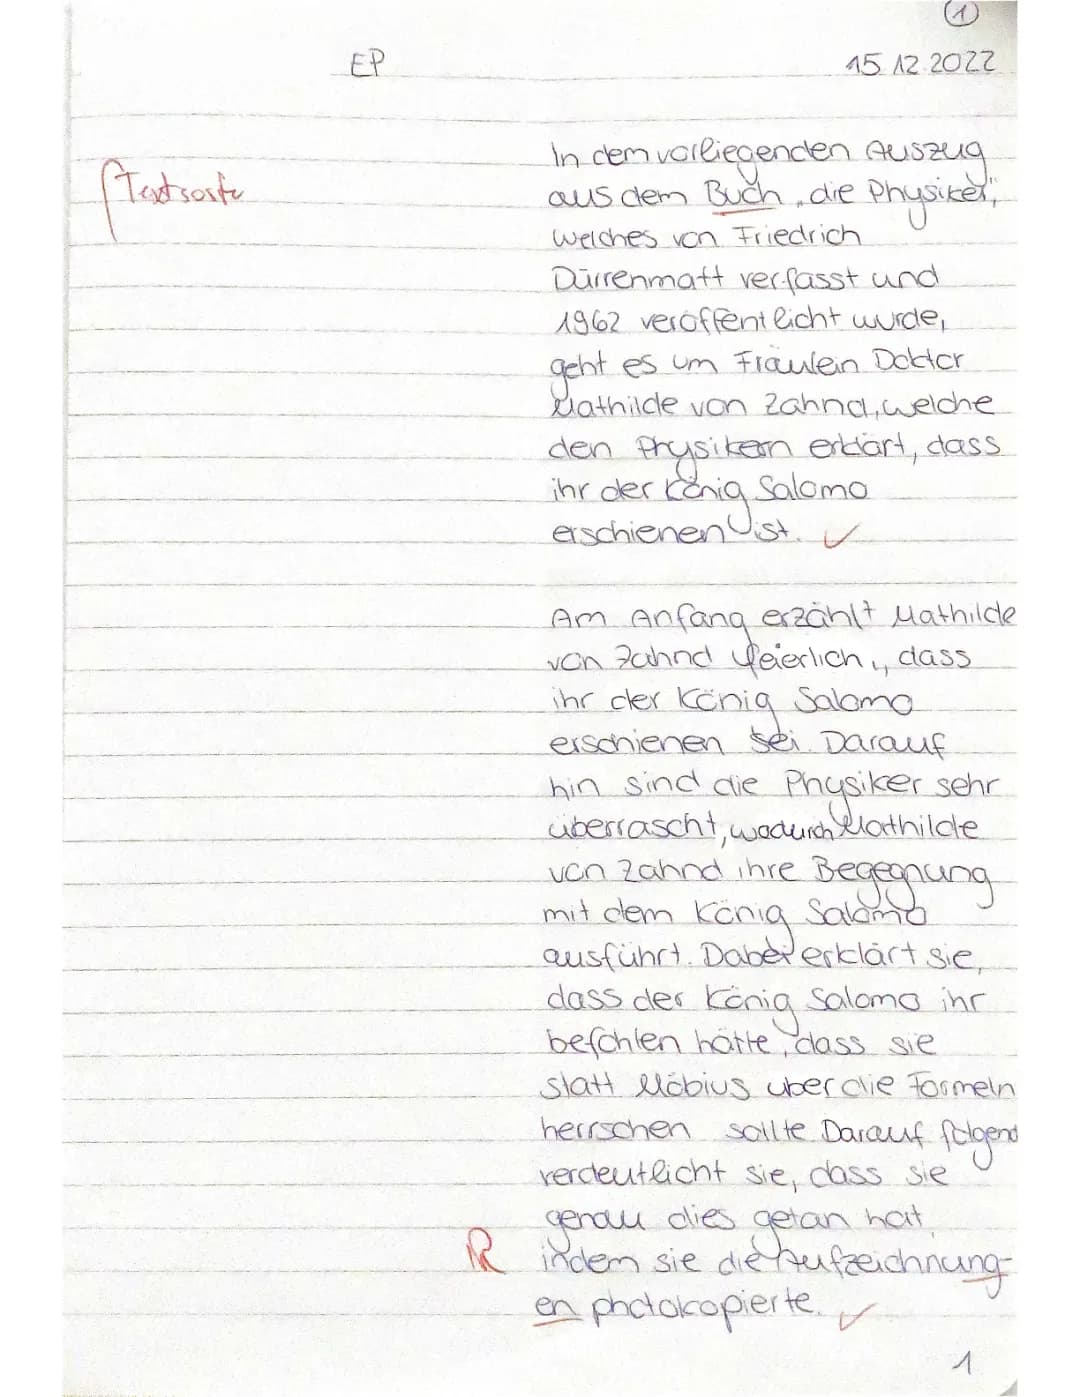 1
EP 15.12.2022
Textsorte
In dem vorliegenden Auszug
aus dem Buch „die Physiker",
welches von Friedrich
Dürrenmatt verfasst und
1962 veröffentlicht wurde,
geht es um Fräulein Doktor
Mathilde von Zahnd, welche
den Physikern erklärt, dass
ihr der König Salomo
erschienen ist. ✓
Am Anfang erzählt Mathilde
von Zahnd feierlich, dass
ihr der König Salomo
erschienen sei. Darauf
hin sind die Physiker sehr
überrascht, wodurch Mathilde
von Zahnd ihre Begegnung
mit dem König Salomo
ausführt. Dabei erklärt sie,
dass der König Salomo ihr
befohlen hätte, dass sie
statt Möbius über die Formeln
herrschen sollte Darauf folgend
verdeutlicht sie, dass sie
genau dies getan hat,
R indem sie die Aufzeichnung-
en photokopierte. ✓
1